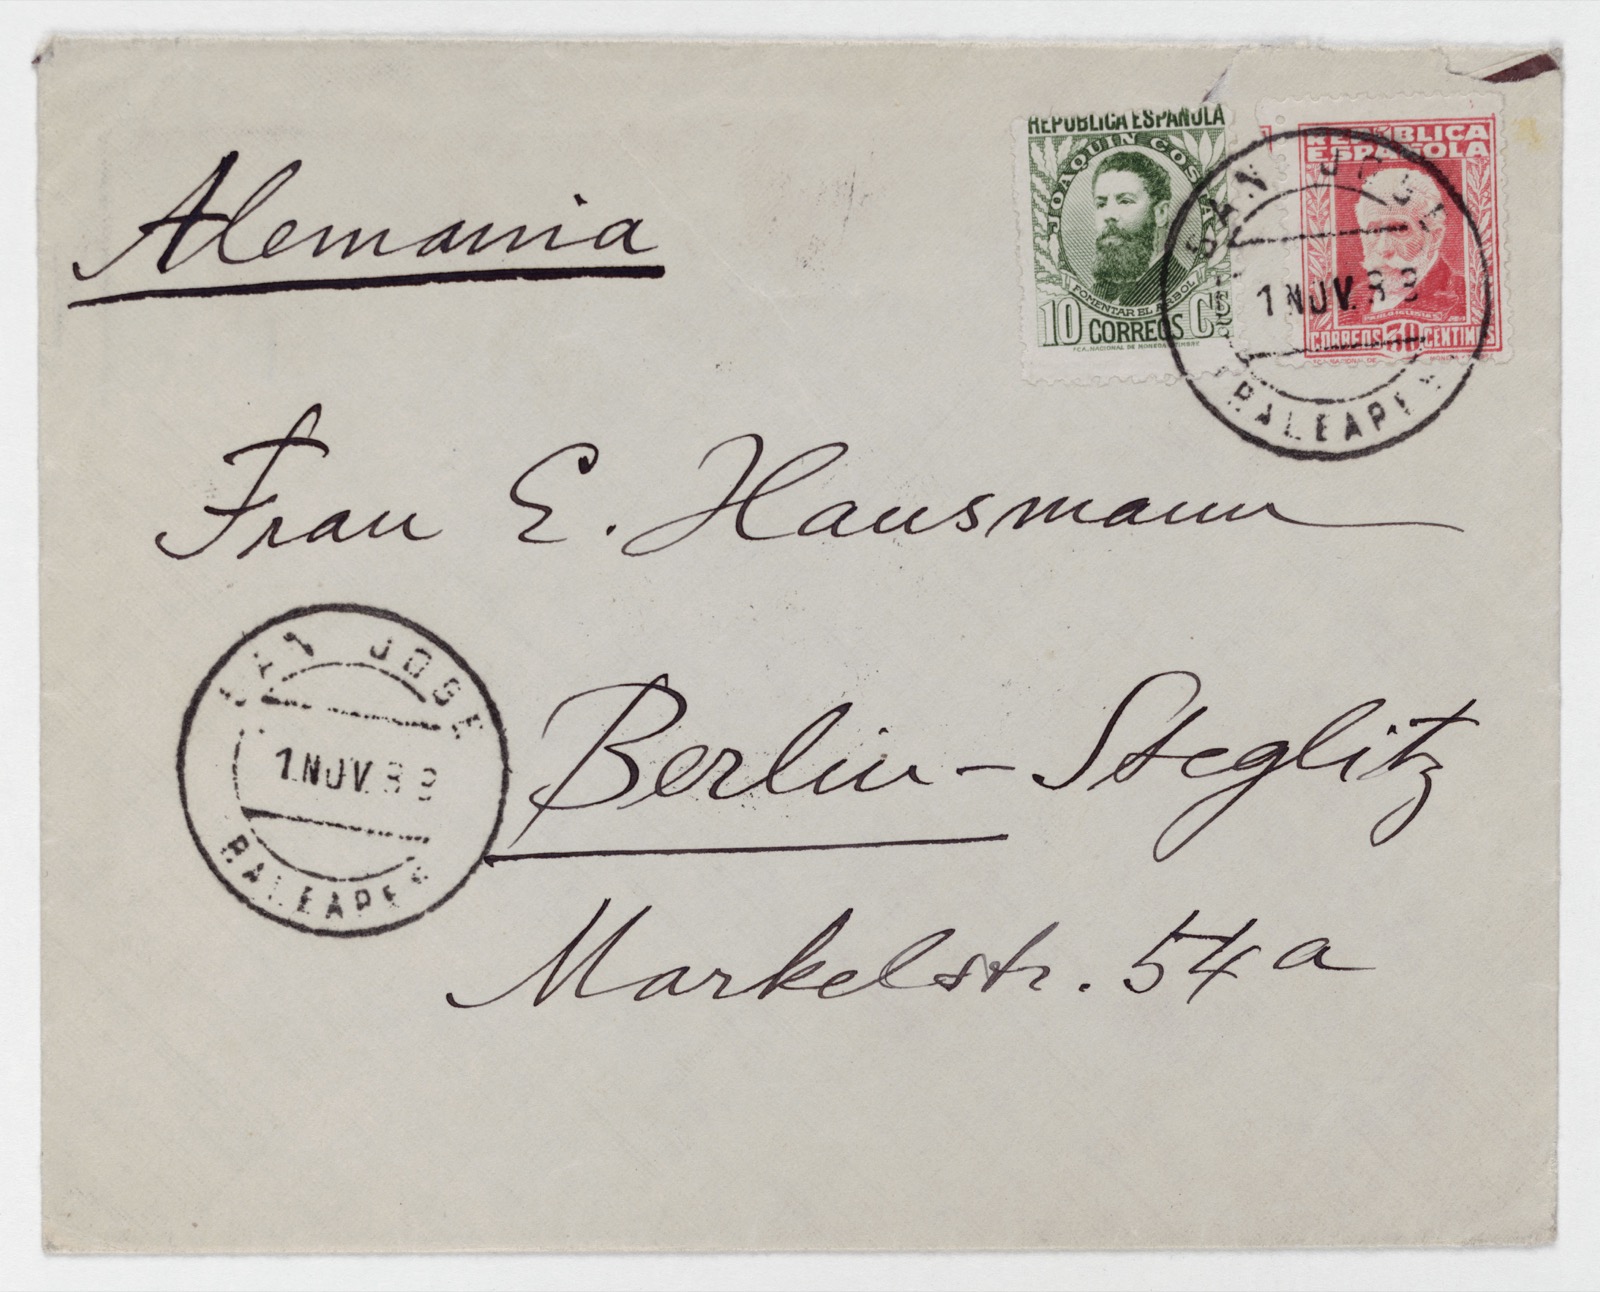 Alemania
REPUBLICA ESPAÑOLA
JOAQUIN COSTA
FOMENTAR EL ARBOL
10 CORREOS Cts
FCA. NACIONAL DE MONEDA Y TIMBRE
REPUBLICA
ESPAÑOLA
PABLO IGLESIAS
CORREOS 30 CENTIMOS
SAN JOSE
1 NOV. 33
BALEARES
Frau E. Hausmann
SAN JOSE
1 NOV. 33
BALEARES
Berlin - Steglitz
Markelstr. 54 a